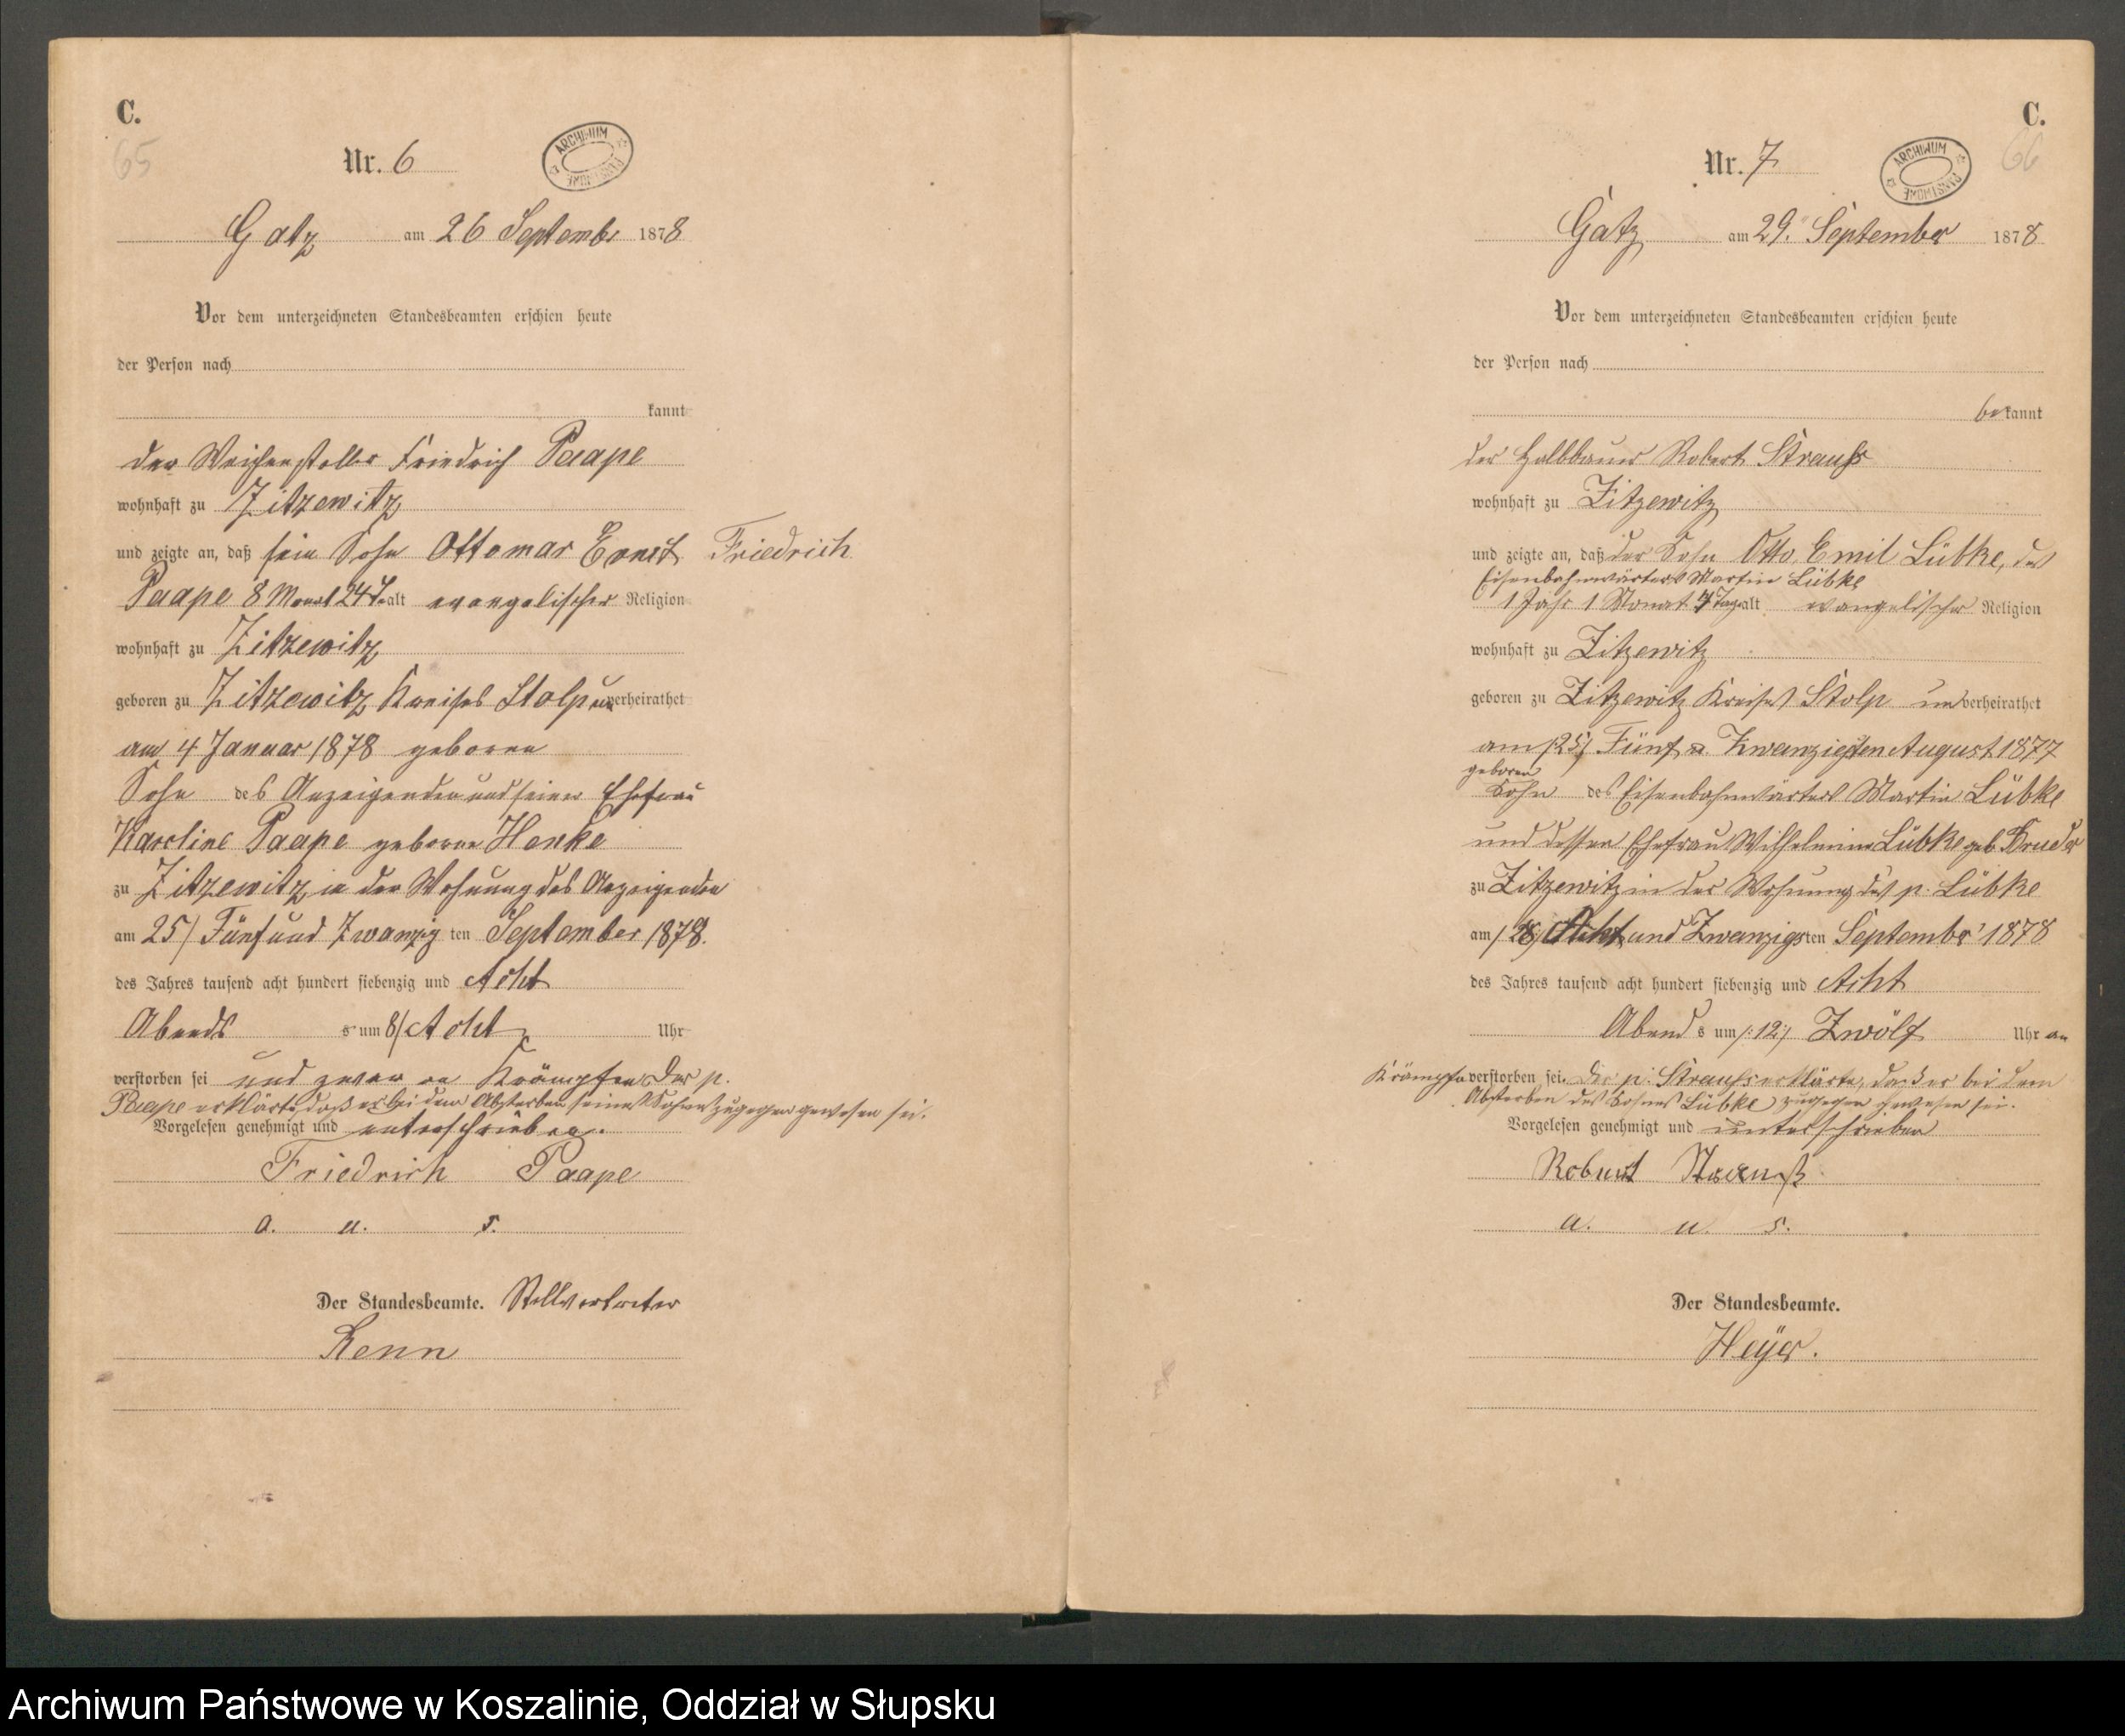 C.
65
Nr. 6
ARCHIWUM PAŃSTWOWE
Gatz am 26 Septembr 1878
Vor dem unterzeichneten Standesbeamten erschien heute
der Person nach
kannt
der Weichensteller Friedrich Paape
wohnhaft zu Zitzewitz
und zeigte an, daß sein Sohn Ottomar Ernst Friedrich
Paape 8 Monat 24 T. alt evangelischer Religion
wohnhaft zu Zitzewitz
geboren zu Zitzewitz Kreises Stolp unverheirathet
am 4 Januar 1878 geboren
Sohn des Anzeigenden und seiner Ehefrau
Karoline Paape geborne Henke
zu Zitzewitz in der Wohnung des Anzeigenden
am 25/ Fünfund Zwanzig ten September 1878.
des Jahres tausend acht hundert siebenzig und Acht
Abends s um 8/ Acht Uhr
verstorben sei und zwar an Krämpfen Der p.
Paape erklärte daß er bei dem Absterben seines Sohnes zugegen gewesen sei.
Vorgelesen genehmigt und unterschrieben.
Friedrich Paape
a. u. s.
Der Standesbeamte. Stellvertreter
Renn
C.
66
Nr. 7
ARCHIWUM PAŃSTWOWE
Gatz am 29. September 1878
Vor dem unterzeichneten Standesbeamten erschien heute
der Person nach
bekannt
der Halbbauer Robert Strauß
wohnhaft zu Zitzewitz
und zeigte an, daß der Sohn Otto, Emil Lübke, des
Eisenbahnwärters Martin Lübke
1 Jahr 1 Monat 4 Tage alt evangelischer Religion
wohnhaft zu Zitzewitz
geboren zu Zitzewitz Kreises Stolp unverheirathet
am /25/ Fünf u Zwanzigsten August 1877
geboren
Sohn des Eisenbahnwärters Martin Lübke
und dessen Ehefrau Wilhelmine Lübke geb.
zu Zitzewitz in der Wohnung des p. Lübke
am /28/ Acht und Zwanzigsten Septembr 1878
des Jahres tausend acht hundert siebenzig und Acht
Abend s um /:12:/ Zwölf Uhr an
Krämpfe verstorben sei. Der p. Strauß erklärte, daß er bei dem
Absterben des Sohnes Lübke zugegen gewesen sei.
Vorgelesen genehmigt und unterschrieben
Robert Strauß
a. u. s.
Der Standesbeamte.
Heÿer.
Archiwum Państwowe w Koszalinie, Oddział w Słupsku